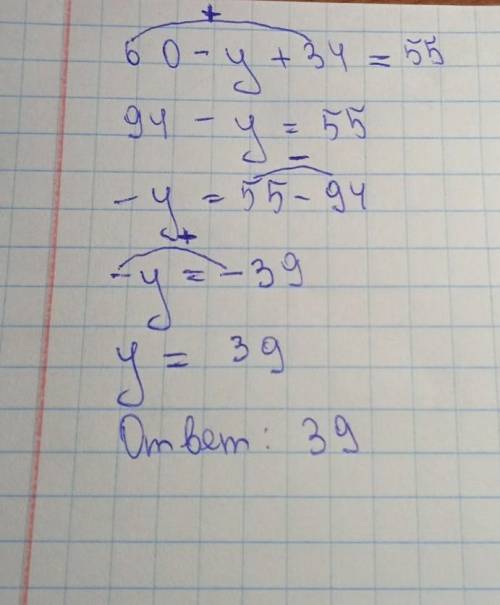 +
60 - y + 34 = 55
94 - y = 55
-
-y = 55 - 94
+
-y = -39
y = 39
Ответ: 39